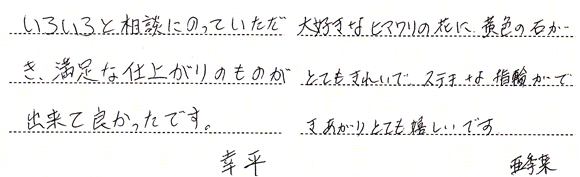 いろいろと相談にのっていただ
き、満足な仕上がりのものが
出来て良かったです。
幸平
大好きなヒマワリの花に黄色の石が
とてもきれいで ステキな指輪がで
きあがりとても嬉しいです
亜季葉